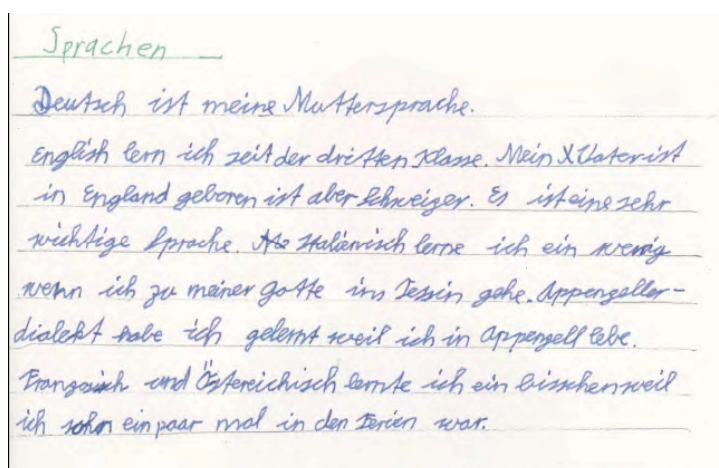 Sprachen
Deutsch ist meine Muttersprache.
English lern ich seit der dritten Klasse. Mein Vater ist
in England geboren ist aber Schweizer. Es ist eine sehr
wichtige Sprache. Italienisch lerne ich ein wenig
wenn ich zu meiner Gotte ins Tessin gehe. Appenzeller-
dialekt habe ich gelernt weil ich in Appenzell lebe.
Französich und Östereichisch lernte ich ein bisschen weil
ich schon ein paar mal in den Ferien war.